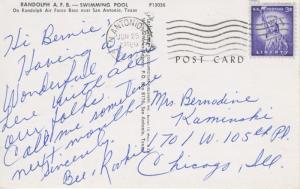 RANDOLPH A. F. B. — SWIMMING POOL P13036
On Randolph Air Force Base near San Antonio, Texas
Hi Bernie,
Having a
Wonderful time
here with all
our folks.
Call me sometime
next month
Sincerely,
Bee,
SAN ANTONIO
JUN 25
POST CARD
LIBERTY
Mrs. Bernadine
Kaminski
1701 W. 105th Pl.
Chicago, Ill.